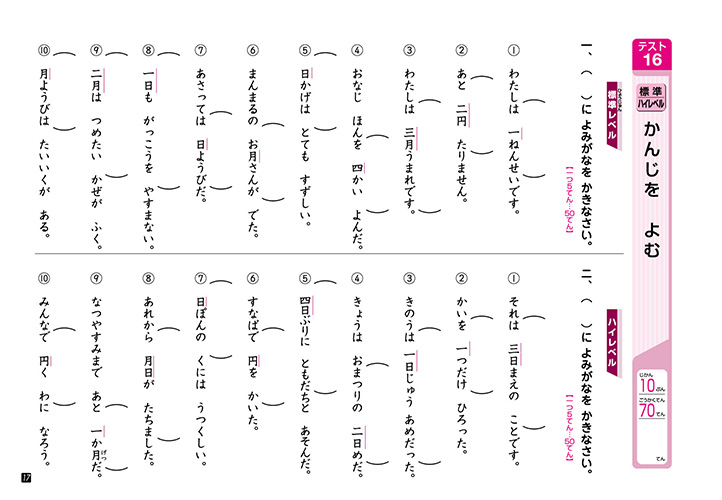 テスト
16
標準
ハイレベル
かんじを よむ
じかん
10ぷん
ごうかくてん
70てん
てん
ひょうじゅん
標準レベル
一、( )に よみがなを かきなさい。
【一つ5てん…50てん】
① わたしは 一ねんせいです。
② あと 二円 たりません。
③ わたしは 三月うまれです。
④ おなじ ほんを 四かい よんだ。
⑤ 日かげは とても すずしい。
⑥ まんまるの お月さんが でた。
⑦ あさっては 日ようびだ。
⑧ 一日も がっこうを やすまない。
⑨ 二月は つめたい かぜが ふく。
⑩ 月ようびは たいいくが ある。
ハイレベル
二、( )に よみがなを かきなさい。
【一つ5てん…50てん】
① それは 三日まえの ことです。
② かいを 一つだけ ひろった。
③ きのうは 一日じゅう あめだった。
④ きょうは おまつりの 二日めだ。
⑤ 四日ぶりに ともだちと あそんだ。
⑥ すなばで 円を かいた。
⑦ 日ぽんの くには うつくしい。
⑧ あれから 月日が たちました。
⑨ なつやすみまで あと 一か月だ。
げつ
⑩ みんなで 円く わに なろう。
17